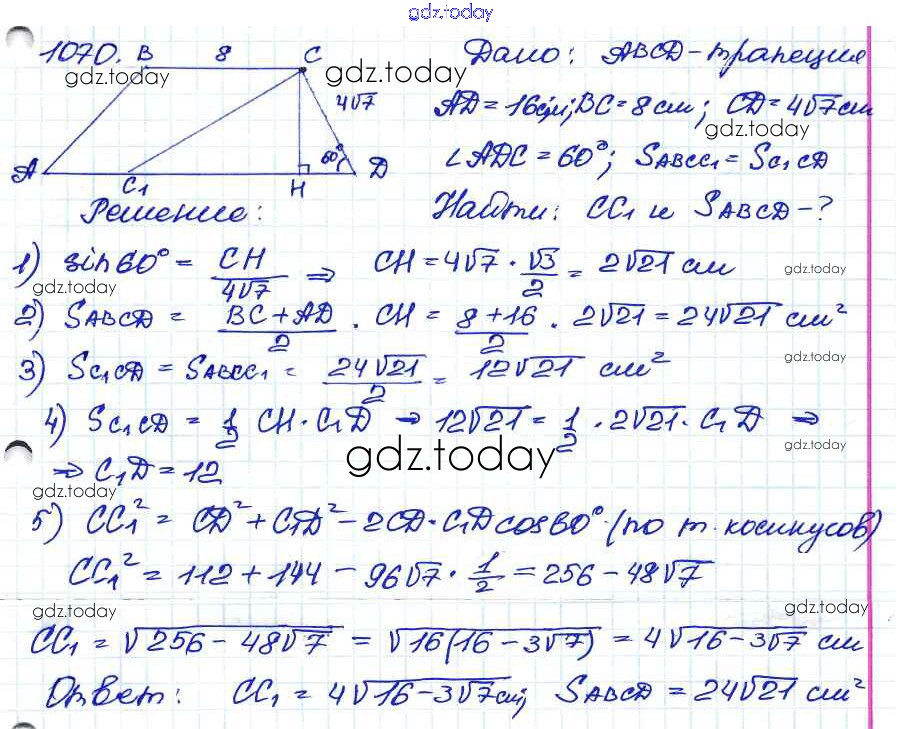 gdz.today
1070. B 8 C Дано: ABCD - трапеция
gdz.today gdz.today
4√7 AD = 16см; BC = 8 см; CD = 4√7 см
gdz.today
A C₁ H 60° D ∠ADC = 60°; SABCC₁ = SC₁CD
Решение: Найти: CC₁ и SABCD - ?
1) sin60° = CH/4√7 ⇒ CH = 4√7 · √3/2 = 2√21 см
gdz.today gdz.today
2) SABCD = (BC + AD)/2 · CH = (8 + 16)/2 · 2√21 = 24√21 см²
gdz.today
3) SC₁CD = SABCC₁ = 24√21/2 = 12√21 см²
4) SC₁CD = 1/2 CH · C₁D → 12√21 = 1/2 · 2√21 · C₁D ⇒
gdz.today gdz.today
⇒ C₁D = 12
gdz.today
5) CC₁² = CD² + C₁D² - 2CD · C₁D cos60° (по т. косинусов)
CC₁² = 112 + 144 - 96√7 · 1/2 = 256 - 48√7
gdz.today gdz.today
CC₁ = √(256 - 48√7) = √(16(16 - 3√7)) = 4√(16 - 3√7) см
Ответ: CC₁ = 4√(16 - 3√7) см; SABCD = 24√21 см²
gdz.today